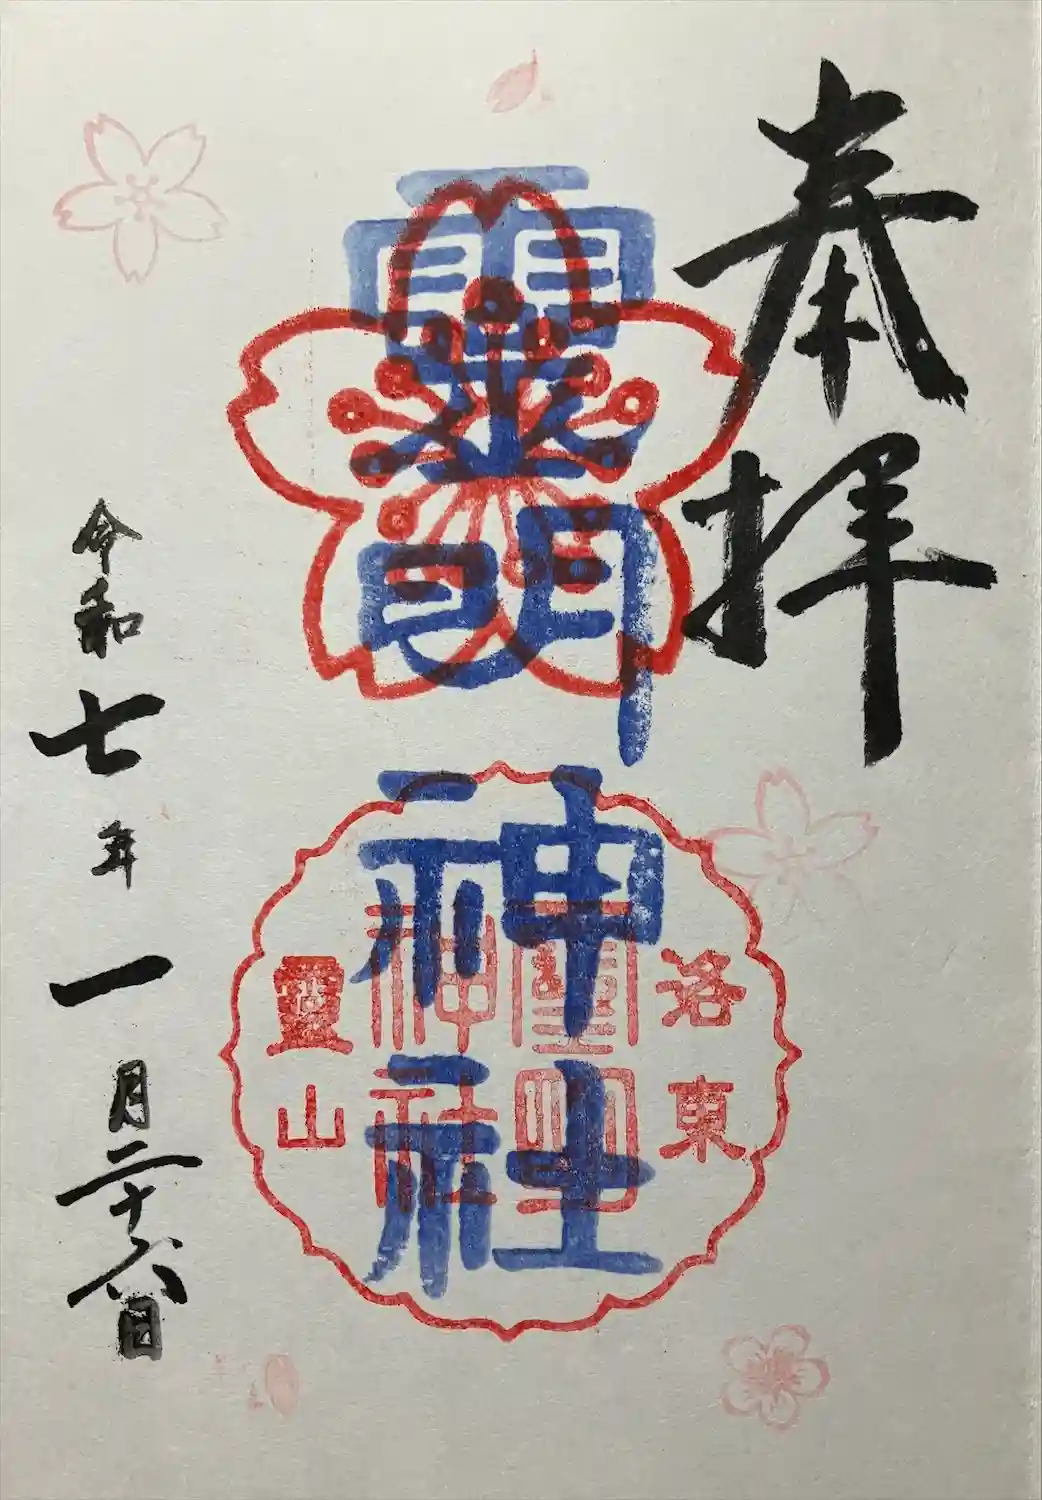 奉拝
霊明神社
洛東
靈明
神社
靈山
令和七年一月二十六日